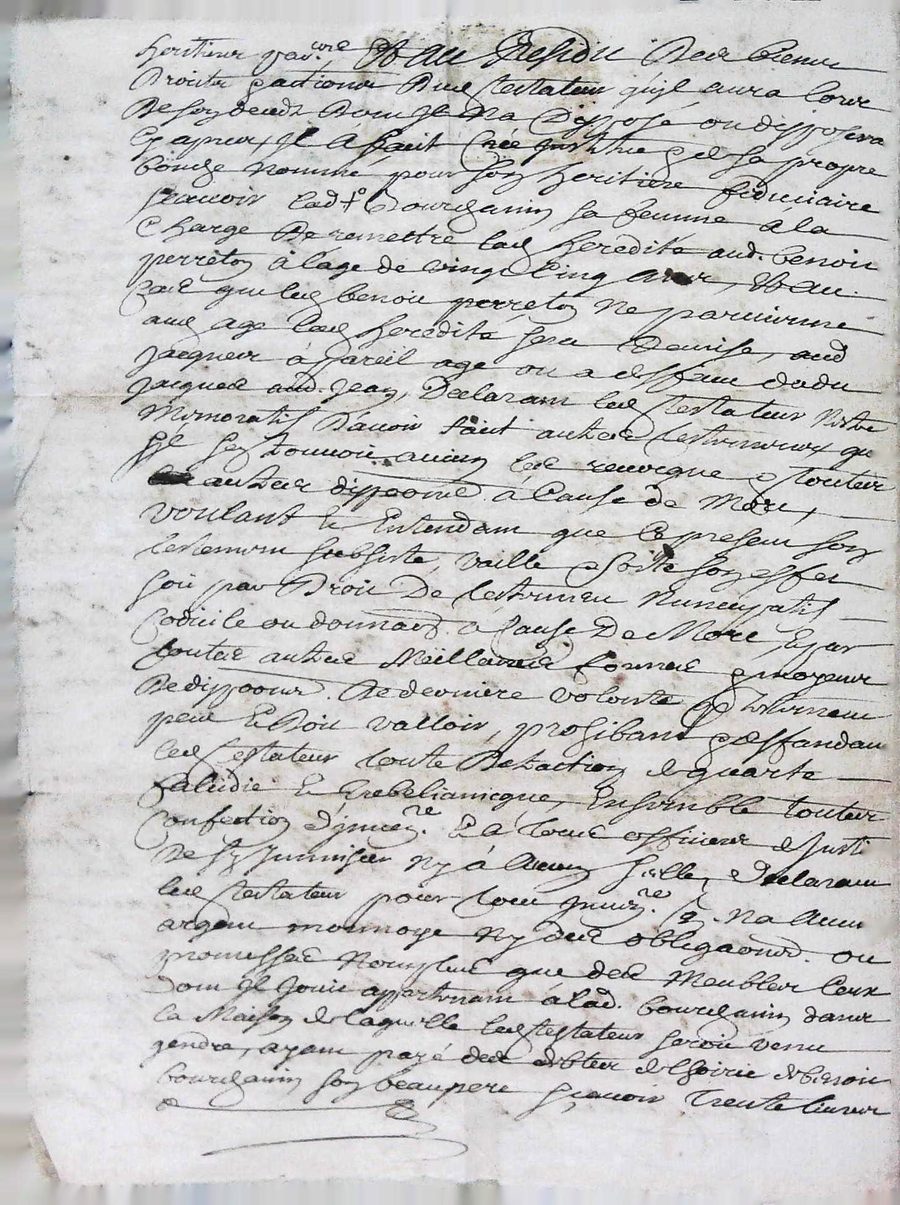 heritiers par.cure Et au Residu Des biens
Droits & actions Dud testateur quil aura lors
De son deceds Dont Il Na Dispposé ou dispposera
Cy apres, Il A fait Créé Institué & de sa propre
bouche nommé pour son heritiere fiduciaire
scavoir lad.te bourganin sa femme á la
Charge De remettre lad heredité aud. benoit
perreton á lage de vingt Cinq ans, Et au
Cas que led benoit perreton Ne parvienne
aud age lad heredité sera Remise, aud
jacques á pareil age ou a deffaut dudu
jacques aud. jean, Declarant led testateur Nestre
Memoratif D'avoir fait autres testaments que
sil sen trouvoit aucun les revoque & toutes
autres disppoons á Cause de Mort,
voulant Et Entendant que Ce present son
testament subsiste, vaille & sorte son effet
soit par Droit De testament Nuncupatif
Codicile ou donnaon á Cause De Mort, Et par
toutes autres Meilleures formes & moyens
De disppoons. De derniere volonté Que testament
peut Et Doit valloir, prohibant & deffandant
led testateur toute Detraction de quarte
faludie Et trebelianicque, Ensemble toutes
Confection d'jnven.re Et á tous officiers de justi
De sy jmmiscer Ny á Aucun scellé, & Declarant
led testateur pour tout jnven.re Quil Na Aucun
argent monnoye Ny des obligaons. ou
promesses Non plus que des Meubles Ceux
Dont Il jouit appartenant á lad. bourganin dans
la Maison de laquelle led testateur seroit venu
gendre, ayant payé des debtes de lhoirie de benoit
bourganin son beaupere scavoir Trente livres